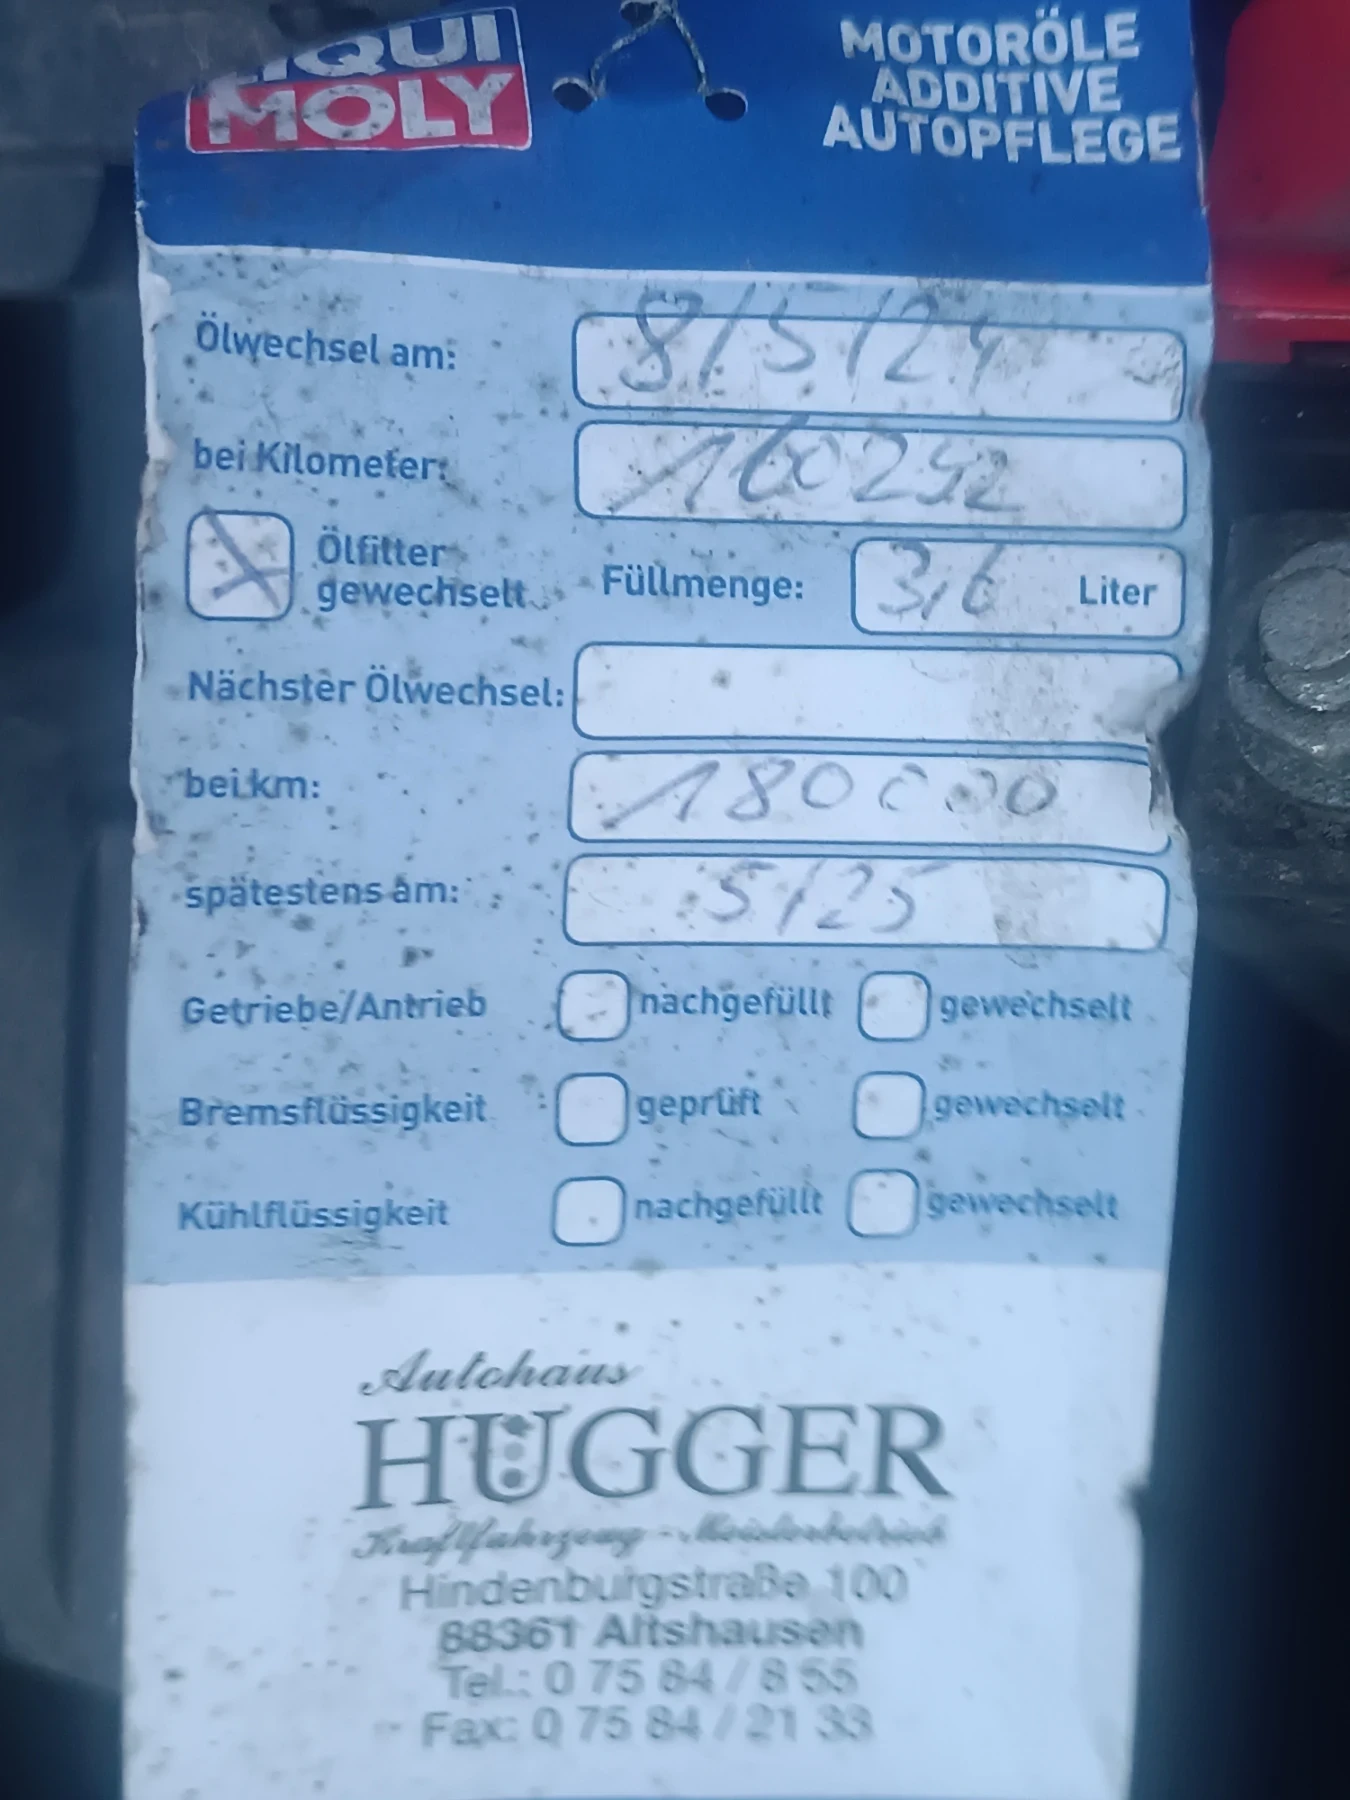 LIQUI
MOLY
MOTORÖLE
ADDITIVE
AUTOPFLEGE
Ölwechsel am: 8/5/24
bei Kilometer: 160252
X Ölfilter
gewechselt Füllmenge: 3,6 Liter
Nächster Ölwechsel:
bei km: 180000
spätestens am: 5/25
Getriebe/Antrieb nachgefüllt gewechselt
Bremsflüssigkeit geprüft gewechselt
Kühlflüssigkeit nachgefüllt gewechselt
Autohaus
HUGGER
Kraftfahrzeug-Meisterbetrieb
Hindenburgstraße 100
88361 Altshausen
Tel.: 0 75 84 / 8 55
Fax: 0 75 84 / 21 33